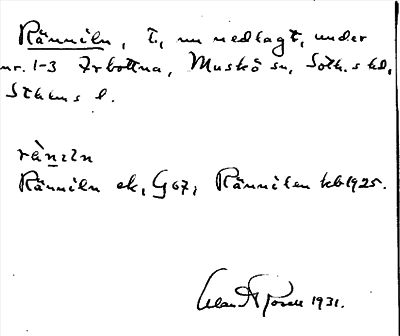 Ränniln, t, nu nedlagt, under
nr. 1-3 Arbottna, Muskö sn, Soth.s hd,
Sthlms l.
rä̀niln
Ränniln ek, G 67, Ränniln kb 1925.
1931.